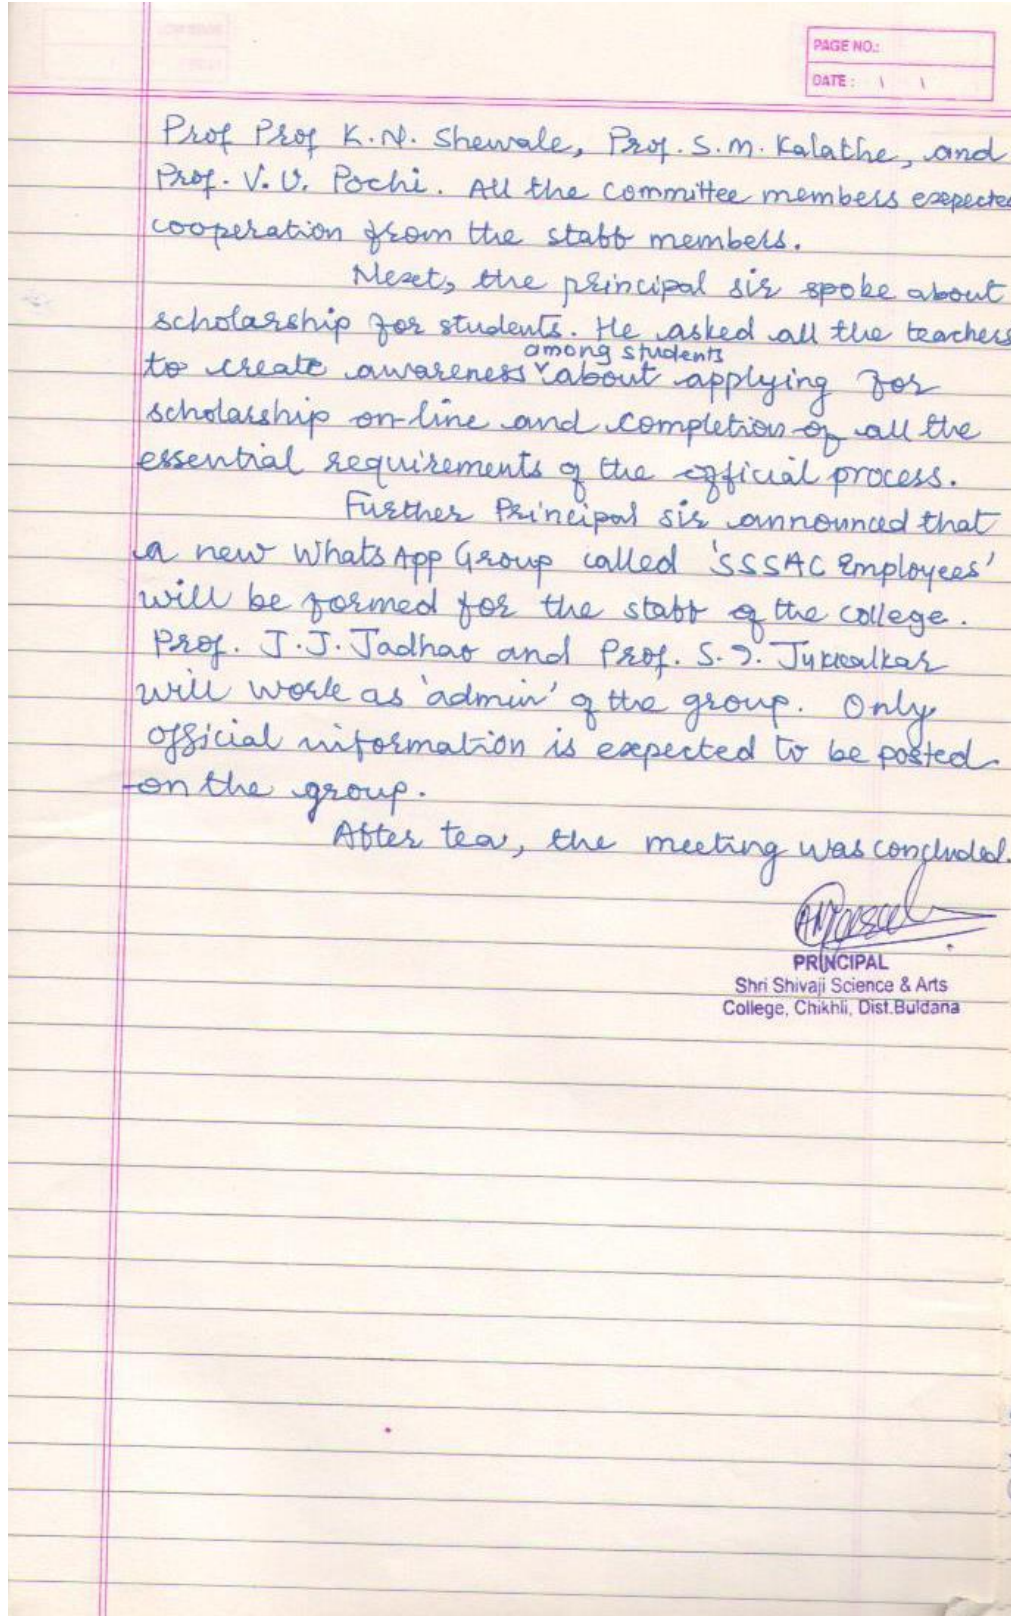 PAGE NO.:
DATE :
Prof Prof K.N. Shewale, Prof. S.M. Kalathe, and
Prof. V.U. Pochi. All the committee members expected
cooperation from the staff members.
Next, the principal sir spoke about
scholarship for students. He asked all the teachers
among students
to create awareness ˅ about applying for
scholarship on-line and completion of all the
essential requirements of the official process.
Further Principal sir announced that
a new WhatsApp Group called 'SSSAC Employees'
will be formed for the staff of the college.
Prof. J.J. Jadhao and Prof. S.
will work as 'admin' of the group. Only
official information is expected to be posted
on the group.
After tea, the meeting was concluded.
PRINCIPAL
Shri Shivaji Science & Arts
College, Chikhli, Dist.Buldana